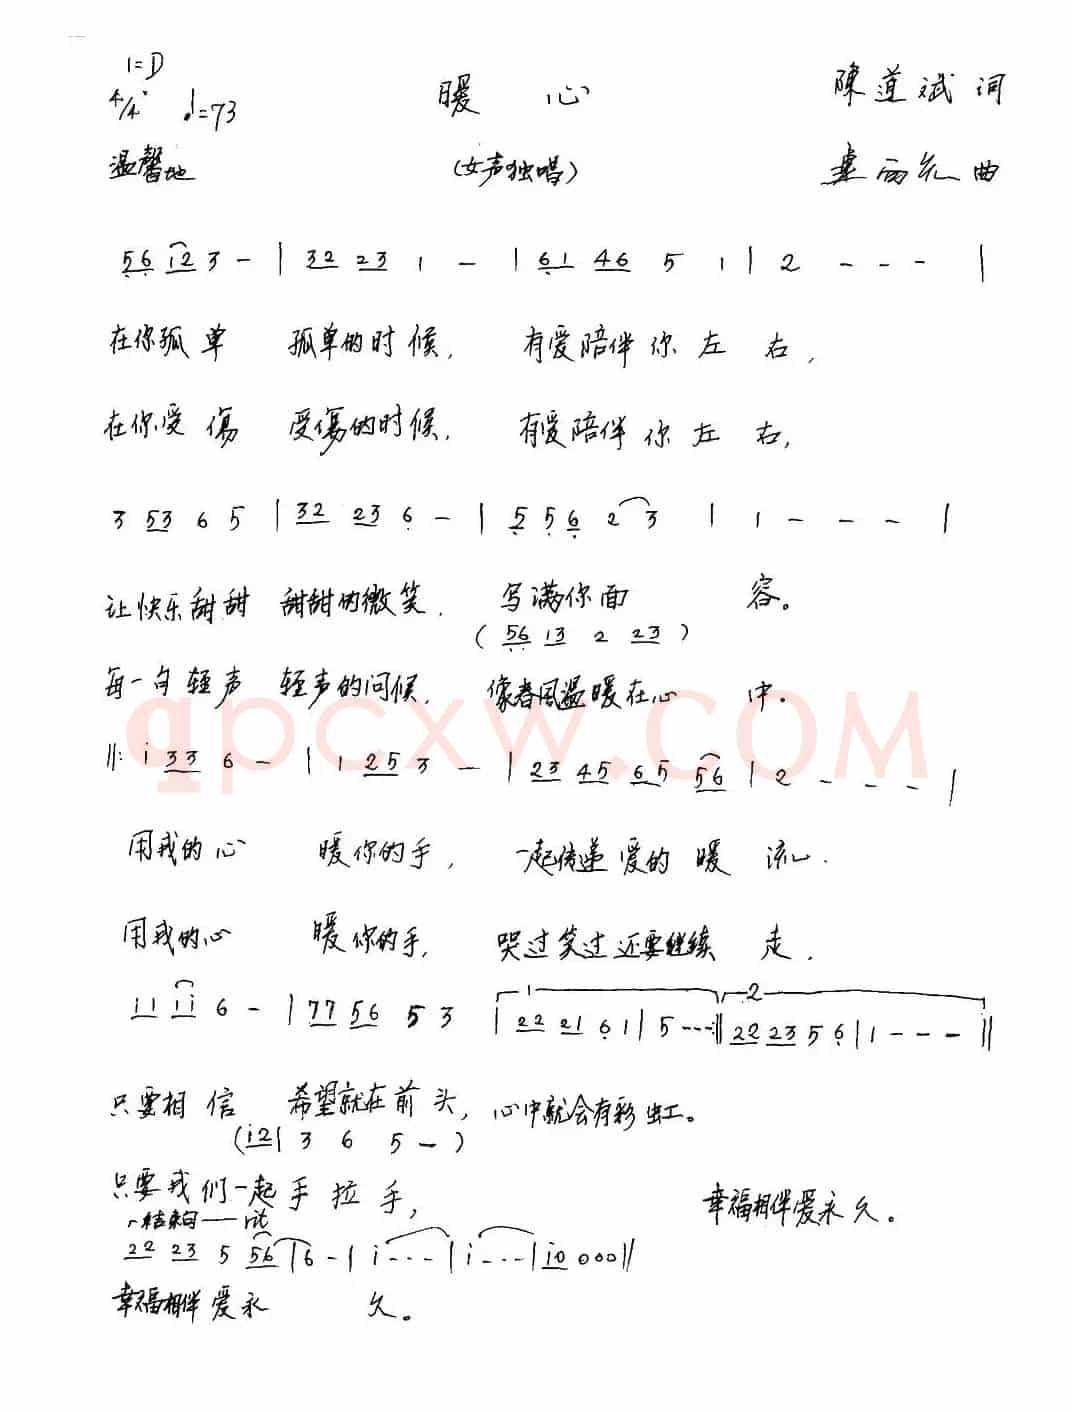 1=D
4/4 ♩=73 暖 心 陳道斌 词
温馨地 (女声独唱) 雨允 曲
56 i2 3 - | 32 23 1 - | 61 46 5 1 | 2 - - - |
在你孤单 孤单的时候, 有爱陪伴你左右,
在你受傷 受傷的时候, 有爱陪伴你左右,
3 53 6 5 | 32 23 6 - | 5 5 6 2 3 | 1 - - - |
让快乐甜甜 甜甜的微笑. 写满你面 容。
( 56 13 2 23 )
每一句轻声 轻声的问候, 像春风温暖在心 中.
qpcxw.COM
‖: i 33 6 - | 1 25 3 - | 23 45 65 56 | 2 - - - |
用我的心 暖你的手, 一起传递爱的暖 流.
用我的心 暖你的手, 哭过笑过还要继续 走.
1 2
ii ii 6 - | 77 56 5 3 | 22 21 6 1 | 5 - - - :‖ 22 23 5 6 | 1 - - - ‖
只要相信 希望就在前头, 心中就会有彩虹。
(i2| 3 6 5 - )
只要我们一起手拉手, 幸福相伴爱永久。
结束句—rit
22 23 5 56 | 6 - | i - - - | i - - - | i0 0 0 0 ‖
幸福相伴爱永 久。